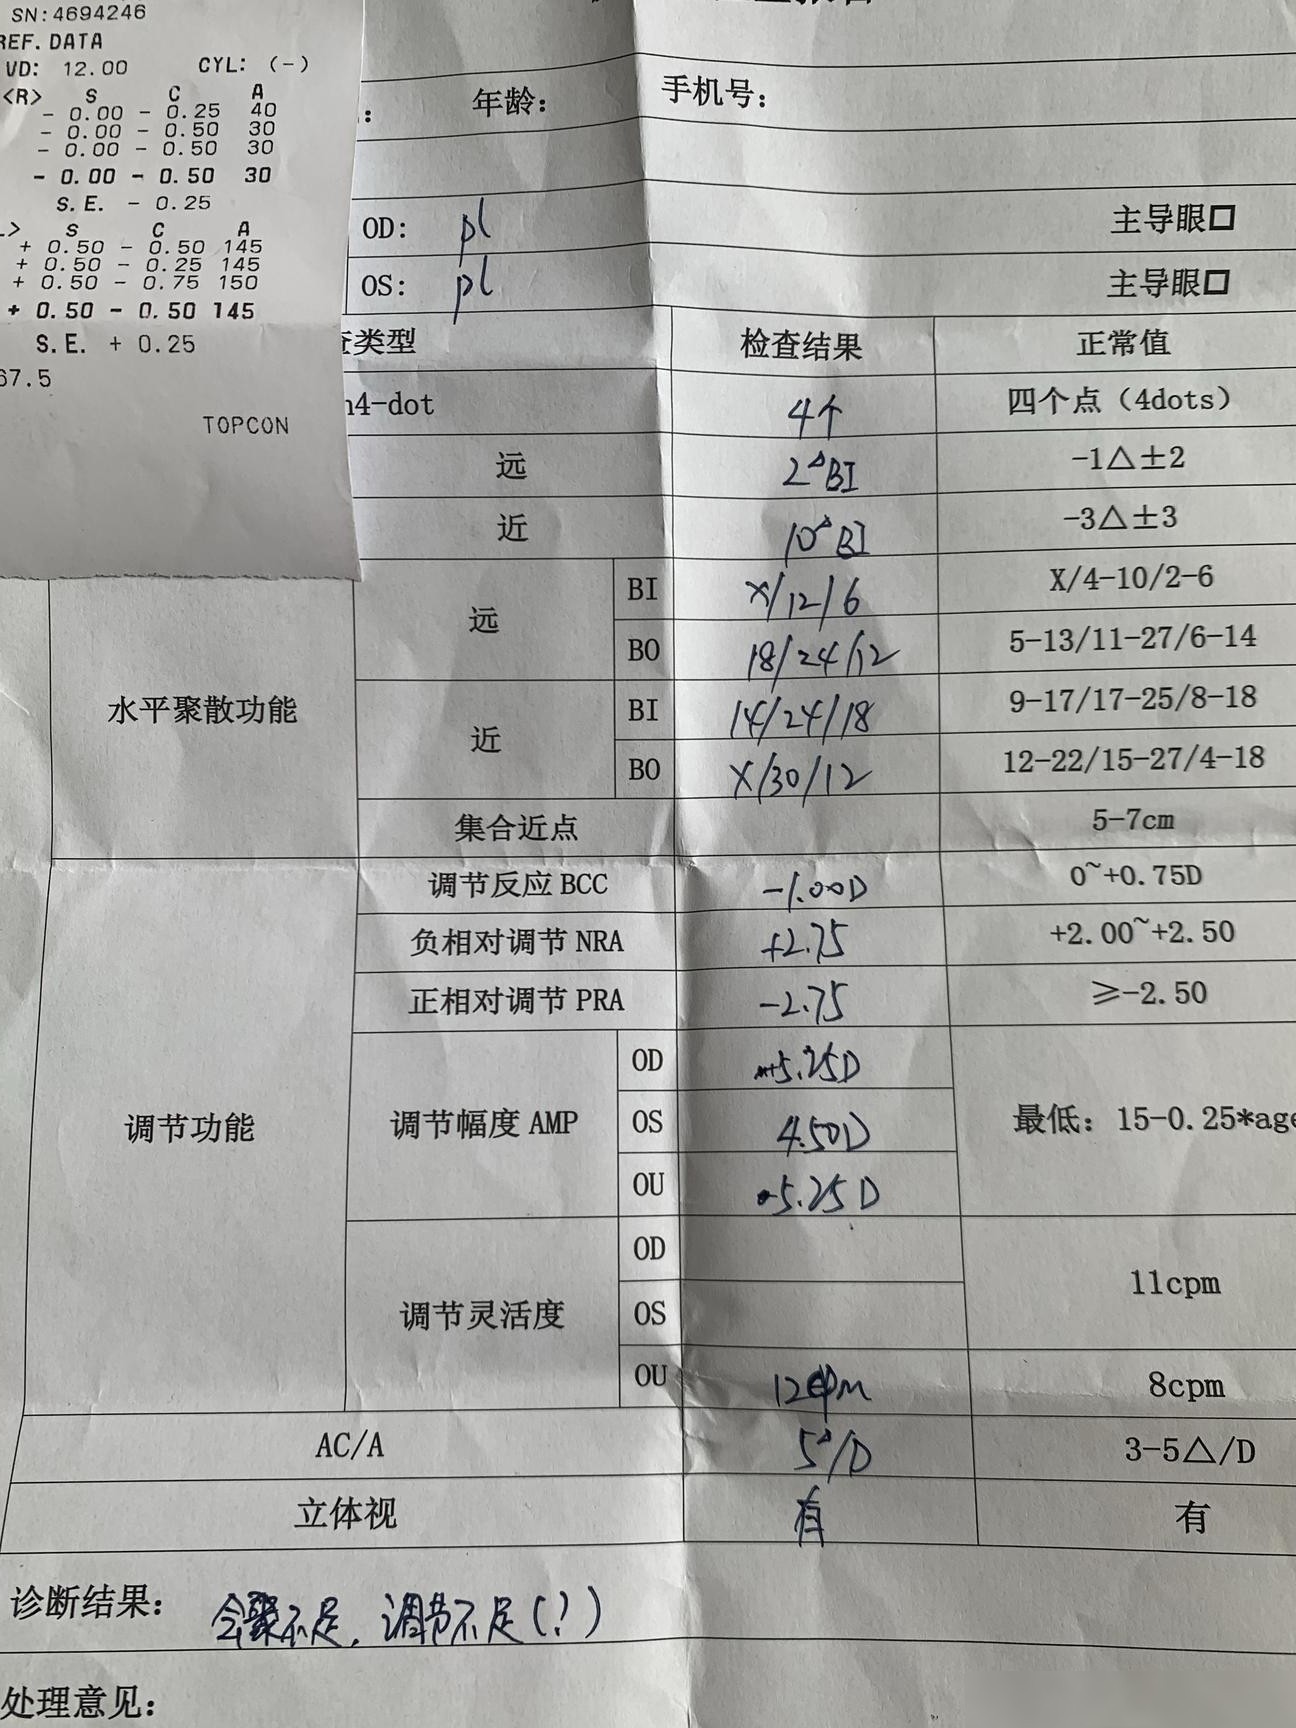 SN:4694246
REF. DATA
VD: 12.00 CYL: (-)
<R> S C A
- 0.00 - 0.25 40
- 0.00 - 0.50 30
- 0.00 - 0.50 30
- 0.00 - 0.50 30
S.E. - 0.25
S C A
+ 0.50 - 0.50 145
+ 0.50 - 0.25 145
+ 0.50 - 0.75 150
+ 0.50 - 0.50 145
S.E. + 0.25
67.5
TOPCON
年龄: 手机号:
OD: pl 主导眼□
OS: pl 主导眼□
查类型 检查结果 正常值
h4-dot 4个 四个点（4dots）
远 2△BI -1△±2
近 10△BI -3△±3
水平聚散功能
远 BI X/12/6 X/4-10/2-6
BO 18/24/12 5-13/11-27/6-14
近 BI 14/24/18 9-17/17-25/8-18
BO X/30/12 12-22/15-27/4-18
集合近点 5-7cm
调节功能
调节反应 BCC -1.00D 0~+0.75D
负相对调节 NRA +2.75 +2.00~+2.50
正相对调节 PRA -2.75 ≥-2.50
调节幅度 AMP 最低: 15-0.25*age
OD 5.25D
OS 4.50D
OU 5.25D
调节灵活度
OD 11cpm
OS
OU 12cpm 8cpm
AC/A 5△/D 3-5△/D
立体视 有 有
诊断结果: 会聚不足, 调节不足(?)
处理意见: